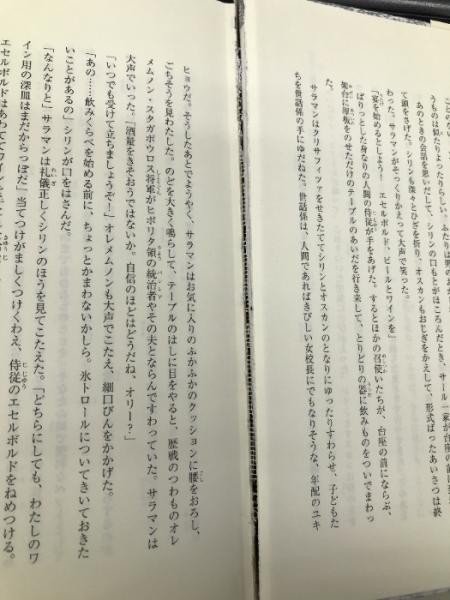 うものは似たりよったりらしい。ふたりは
あのときの会話を思いだして、シリンの口もとがほころんだとき、サール一家が台座の前に
て頭をさげた。シリンも深々とひざを折り、オスカンもおじぎをかえして、形式ばったあいさつは終
わった。サラマンがそっくりかえって大声で笑った。
「宴を始めるとしよう！　エセルボルド、ビールとワインを」
ぱりっとした身なりの人間の侍従が手をあげた。するとほかの召使いたちが、台座の前にならぶ、
架台に厚板をのせただけのテーブルのあいだを行き来して、とりどりの器に飲みものをついでまわっ
た。
サラマンはクリサフィツァをせきたててシリンとオスカンのとなりにゆったりすわらせ、子どもた
ちを世話係の手にゆだねた。世話係は、人間であればきびしい女校長にでもなりそうな、年配のユキ
ヒョウだ。そうしたあとでようやく、サラマンはお気に入りのふかふかのクッションに腰をおろし、
ごちそうを見わたした。のどを大きく鳴らして、テーブルのはしに目をやると、歴戦のつわものオレ
メムノン・スタガポウロス将軍がヒポリタ領の統治者やその夫とならんですわっていた。サラマンは
大声でいった。「酒量をきそおうではないか。自信のほどはどうだね、オリー？」
「いつでも受けて立ちましょうぞ！」オレメムノンも大声でこたえ、細口びんをかかげた。
「あの……飲みくらべを始める前に、ちょっとかまわないかしら。氷トロールについてきいておきた
いことがあるの」シリンが口をはさんだ。
「なんなりと」サラマンは礼儀正しくシリンのほうを見てこたえた。「どちらにしても、わたしのワ
イン用の深皿はまだからっぽだ」当てつけがましくつけくわえ、侍従のエセルボルドをねめつける。
エセルボルドはあわててワインを